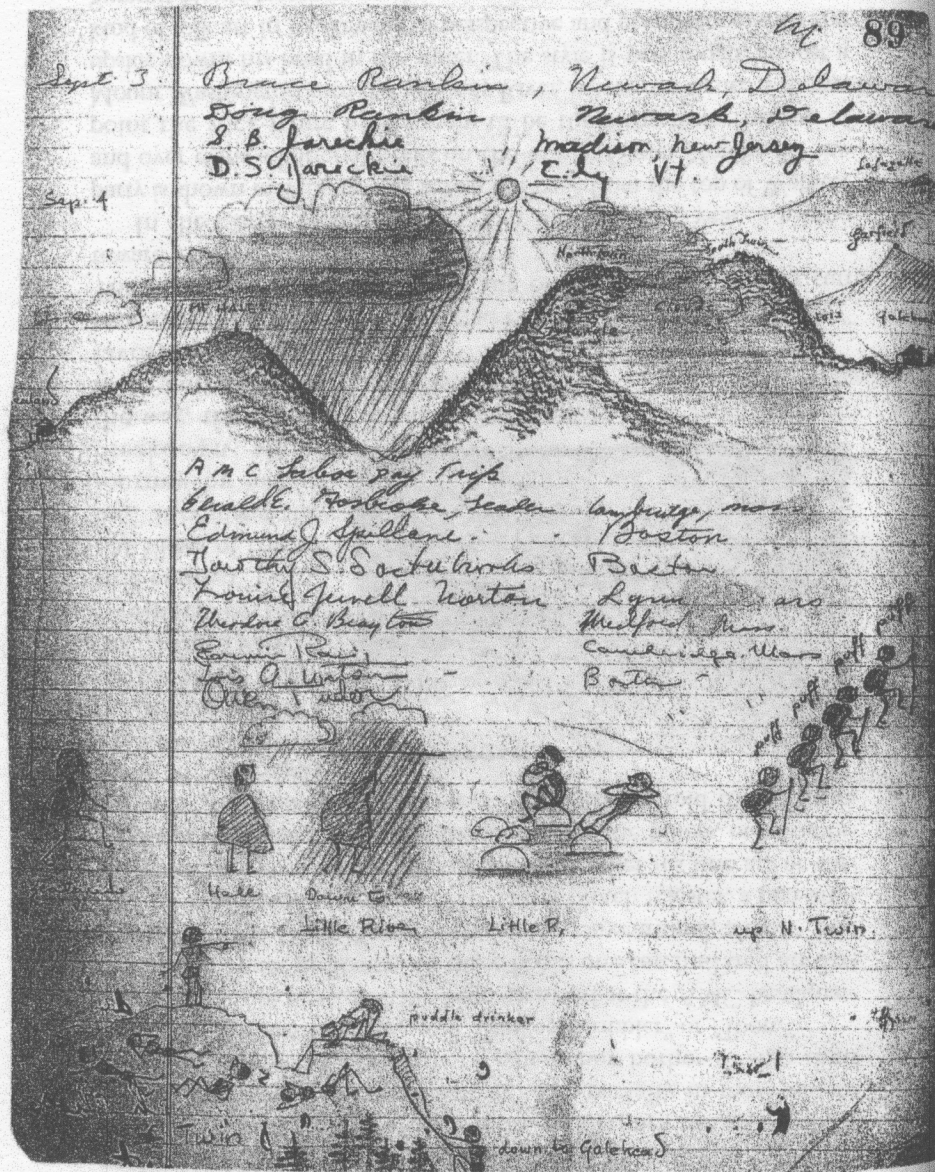 89
Sept. 3 Bruce Rankin, Newark, Delawar
Doug Rankin Newark, Delawar
S. B. Jareckie Madison, New Jersey
D. S. Jareckie Ely Vt.
Sep. 4
Lafayette
Garfield
North Twin
South Twin
Cloud
Galehea
AMC Labor Day Trip
Leader Cambridge, Mass
Edmund J. Spillane. Boston
Dorothy S. Boston
Louise Jewell Norton Lynn
Theodore C. Brayton Medford Mass
Cambridge. Mass
Lois A. Boston
Owen Tudor
puff puff puff puff puff
Hale
Down to
Little River
Little R.
up N. Twin.
puddle drinker
Twin
down to Galehead